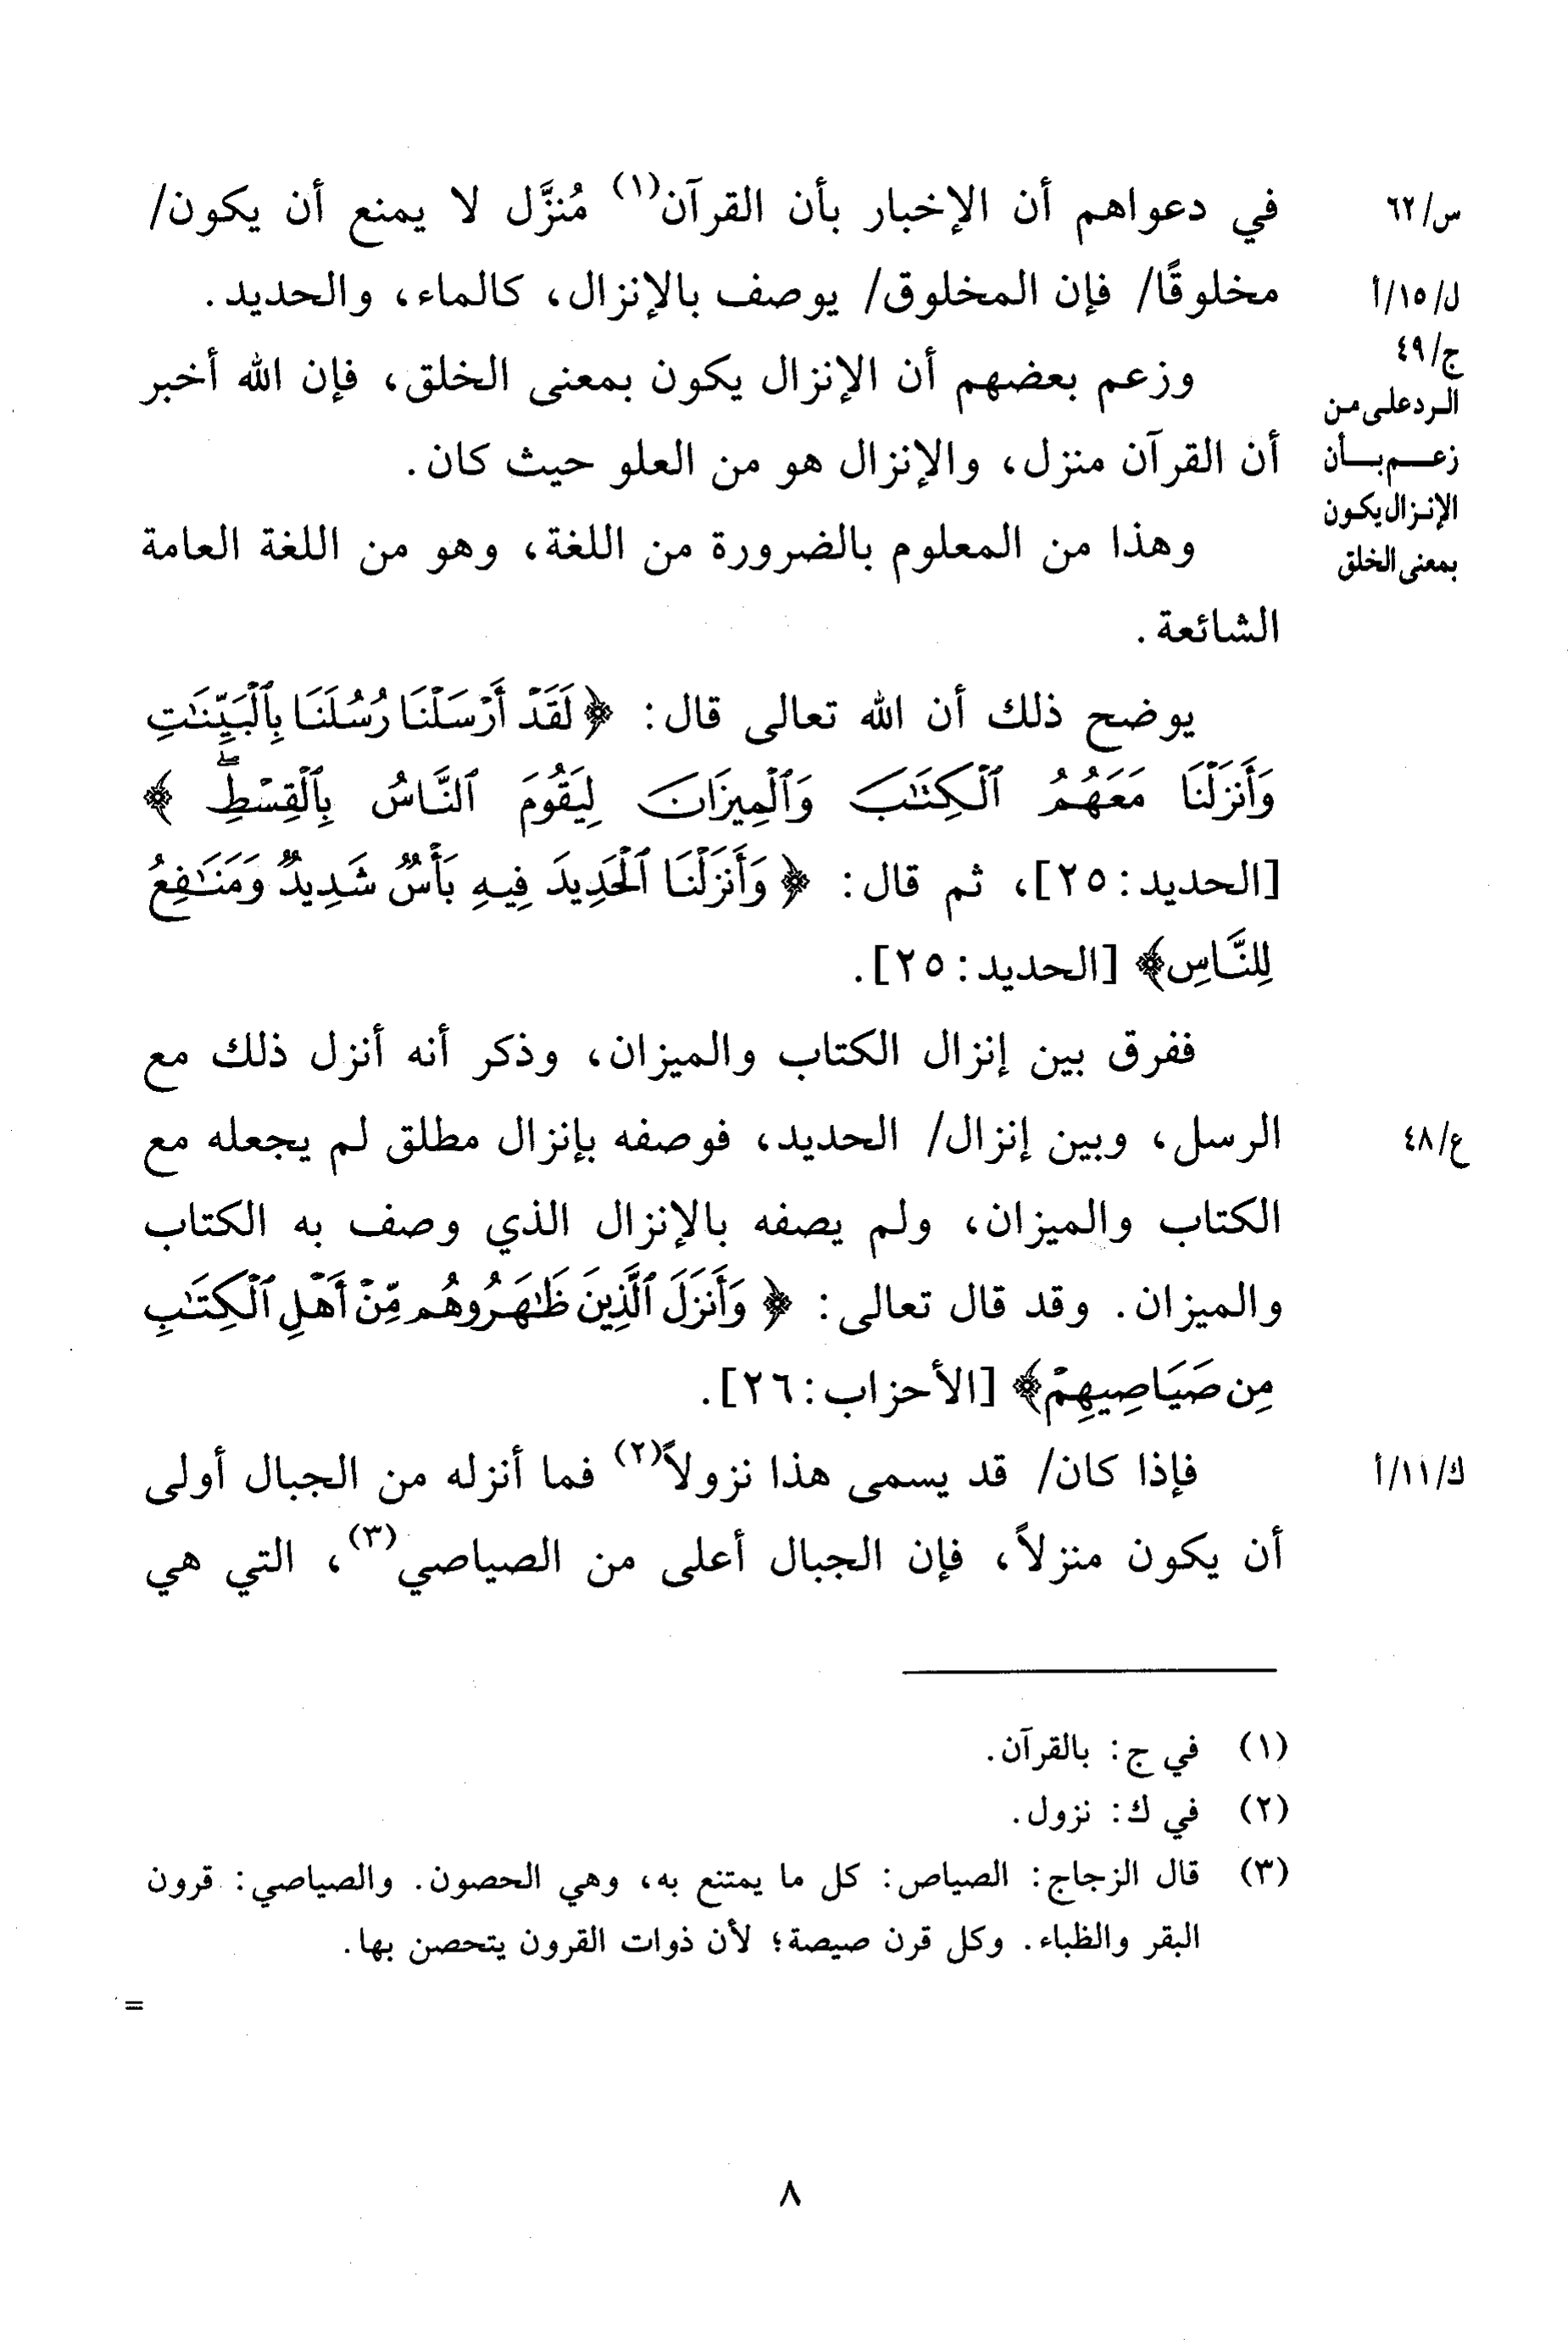 في دعواهم أن الإخبار بأن القرآن(١) مُنزَّل لا يمنع أن يكون/
س/٦٢
مخلوقًا/ فإن المخلوق/ يوصف بالإنزال، كالماء، والحديد.
ل/١٥/أ
ج/٤٩
وزعم بعضهم أن الإنزال يكون بمعنى الخلق، فإن الله أخبر
الرد على من
أن القرآن منزل، والإنزال هو من العلو حيث كان.
زعم بأن
الإنزال يكون
وهذا من المعلوم بالضرورة من اللغة، وهو من اللغة العامة
بمعنى الخلق
الشائعة.
يوضح ذلك أن الله تعالى قال: ﴿لَقَدْ أَرْسَلْنَا رُسُلَنَا بِٱلْبَيِّنَٰتِ
وَأَنزَلْنَا مَعَهُمُ ٱلْكِتَٰبَ وَٱلْمِيزَانَ لِيَقُومَ ٱلنَّاسُ بِٱلْقِسْطِۖ﴾
[الحديد: ٢٥]، ثم قال: ﴿وَأَنزَلْنَا ٱلْحَدِيدَ فِيهِ بَأْسٌ شَدِيدٌ وَمَنَٰفِعُ
لِلنَّاسِ﴾ [الحديد: ٢٥].
ففرق بين إنزال الكتاب والميزان، وذكر أنه أنزل ذلك مع
الرسل، وبين إنزال/ الحديد، فوصفه بإنزال مطلق لم يجعله مع
ع/٤٨
الكتاب والميزان، ولم يصفه بالإنزال الذي وصف به الكتاب
والميزان. وقد قال تعالى: ﴿وَأَنزَلَ ٱلَّذِينَ ظَٰهَرُوهُم مِّنْ أَهْلِ ٱلْكِتَٰبِ
مِن صَيَاصِيهِمْ﴾ [الأحزاب: ٢٦].
فإذا كان/ قد يسمى هذا نزولاً(٢) فما أنزله من الجبال أولى
ك/١١/أ
أن يكون منزلاً، فإن الجبال أعلى من الصياصي(٣)، التي هي
(١) في ج: بالقرآن.
(٢) في ك: نزول.
(٣) قال الزجاج: الصياص: كل ما يمتنع به، وهي الحصون. والصياصي: قرون
البقر والظباء. وكل قرن صيصة؛ لأن ذوات القرون يتحصن بها.
=
٨